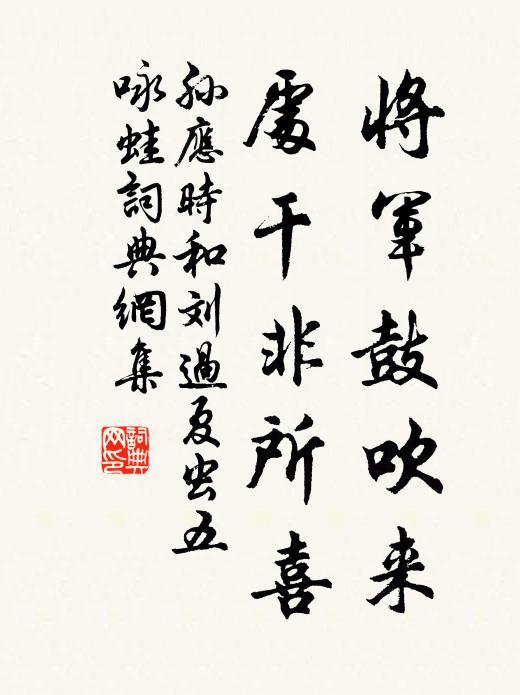 將軍鼓吹来
處干非所喜
孫應時和刘過夏虫五
咏蛙詞典網集
詞典网印